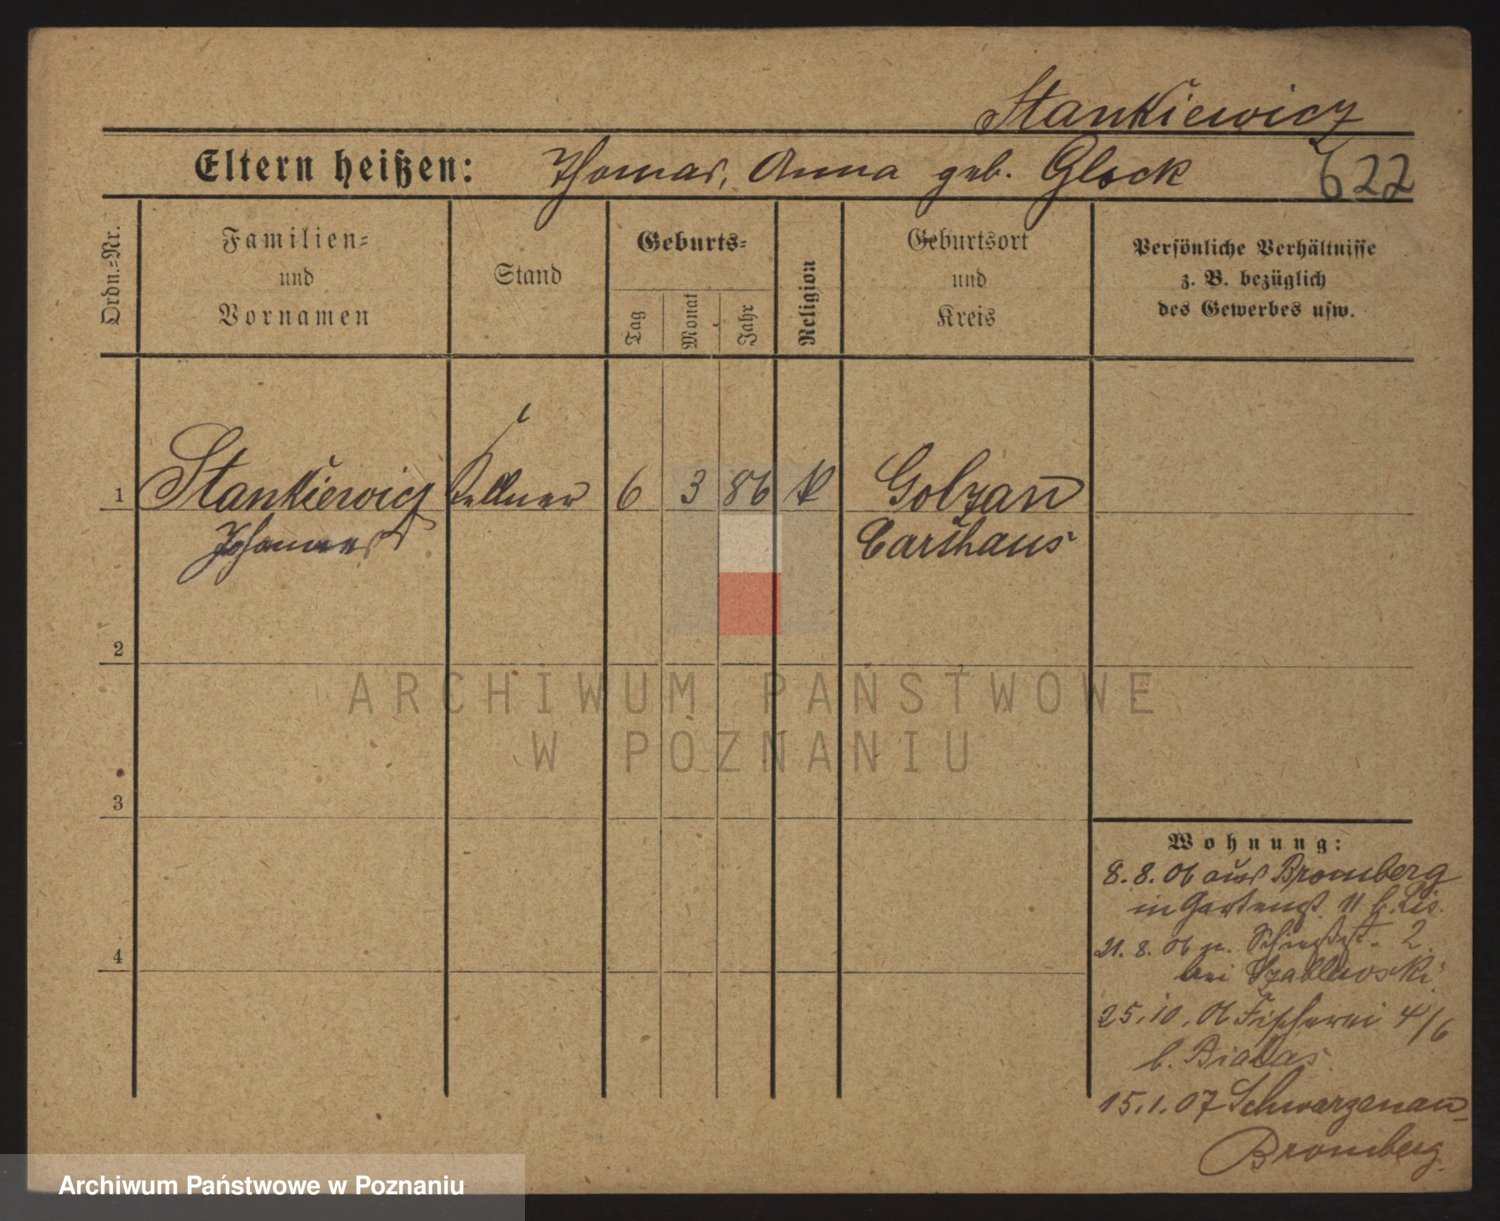 Stankiewicz
Eltern heißen: Thomas, Anna geb. Glock
622
Ordn.=Nr.
Familien=
und
Vornamen
Stand
Geburts=
Tag
Monat
Jahr
Religion
Geburtsort
und
Kreis
Persönliche Verhältnisse
z. B. bezüglich
des Gewerbes usw.
1 Stankiewicz Kellner 6 3 86 k Golzau
Johannes Carthaus
2
ARCHIWUM PAŃSTWOWE
W POZNANIU
3
4
Wohnung:
8.8.06 aus Bromberg
in Gartenst. 11 b.
21.8.06 n. 2
bei Szablewski
25.10.06 Fischerei 4/6
b. Bialas
15.1.07 Schwarzenau
Bromberg
Archiwum Państwowe w Poznaniu